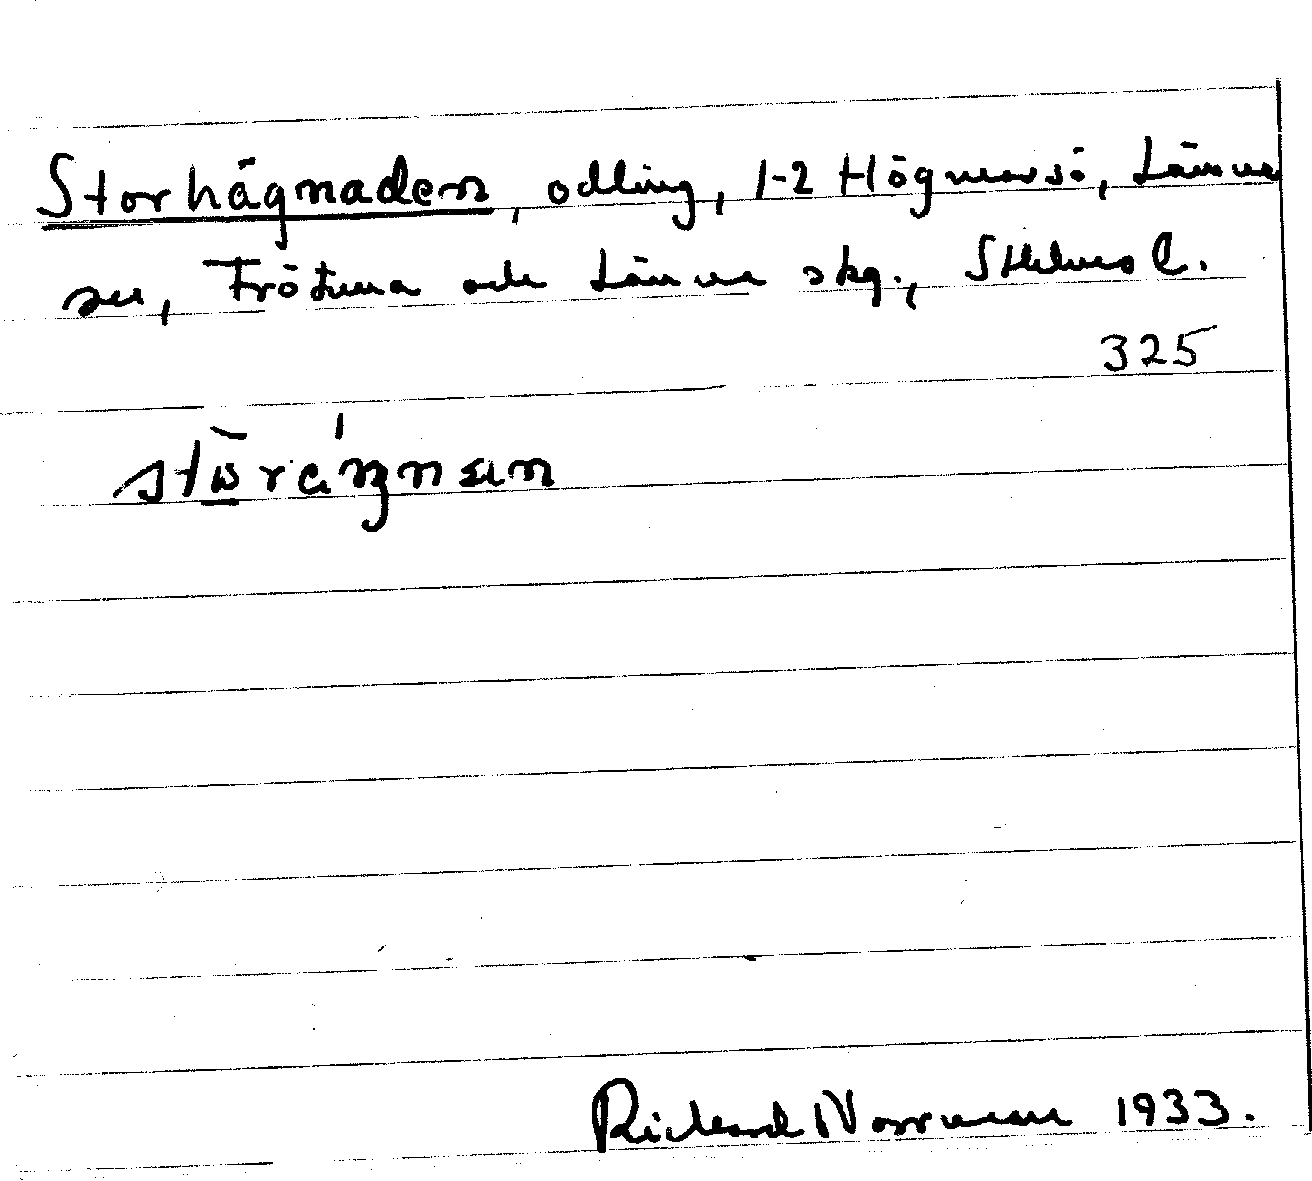 Storhägnaden, odling, 1-2 Högmarsö, Länna
sn, Frötuna och Länna skg., Sthlms l.
325
Rickard Norrman 1933.